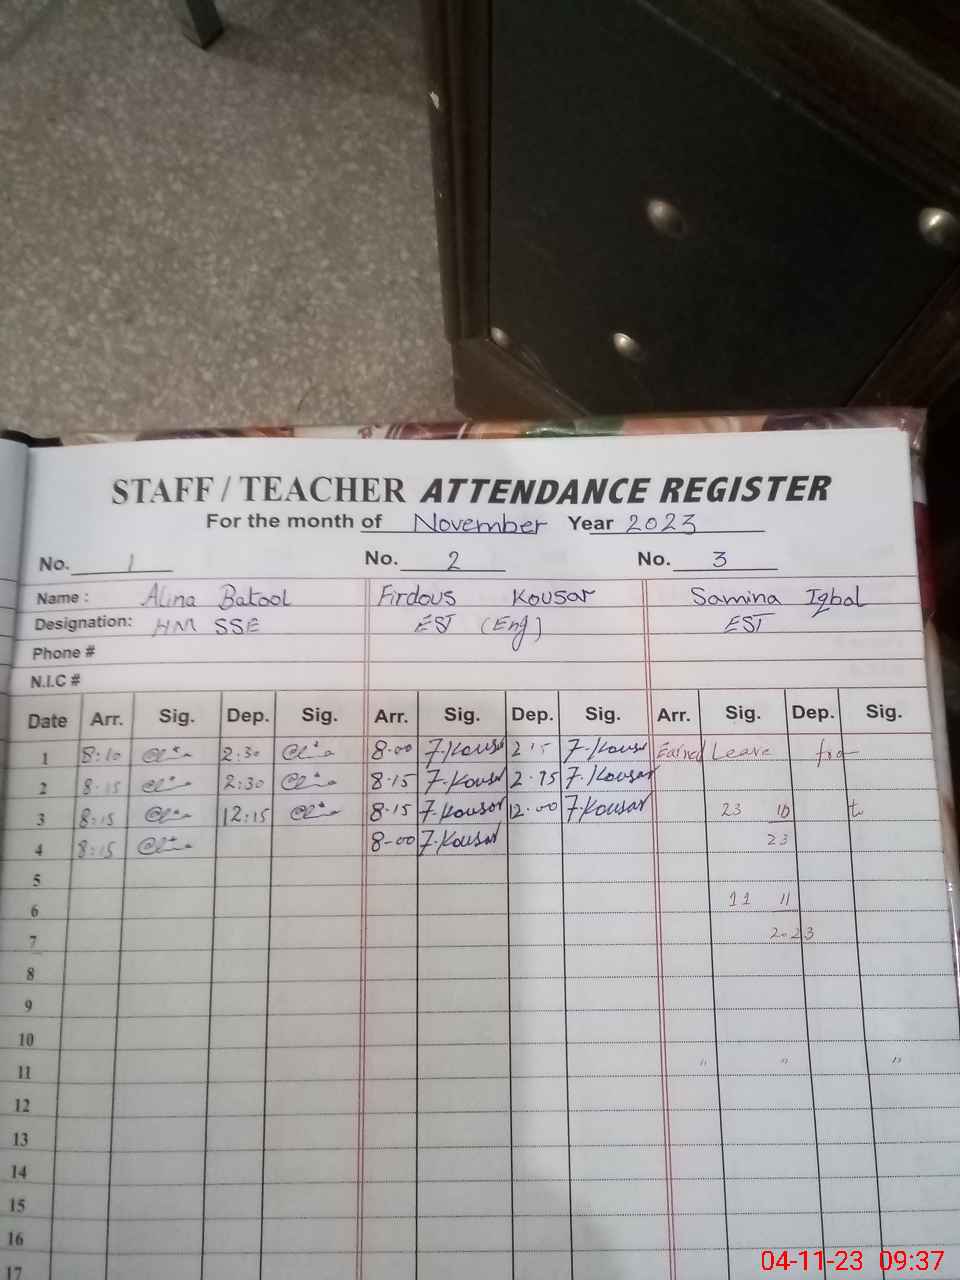 STAFF / TEACHER ATTENDANCE REGISTER
For the month of November Year 2023
No. 1 No. 2 No. 3
Name : Alina Batool Firdous Kousar Samina Iqbal
Designation: HM SSE EST (Eng) EST
Phone #
N.I.C #
Date Arr. Sig. Dep. Sig. Arr. Sig. Dep. Sig. Arr. Sig. Dep. Sig.
1 8:10 2:30 8-00 7.Kousar 2 15 7.Kousar Earned Leave
2 8:15 2:30 8.15 7.Kousar 2.15 7.Kousar
3 8:15 12:15 8.15 7.Kousar 12.00 7.Kousar 23 10
4 8:15 8-00 7.Kousar 23
5
6 11 11
7 2023
8
9
10
11 " " "
12
13
14
15
16
17
04-11-23 09:37